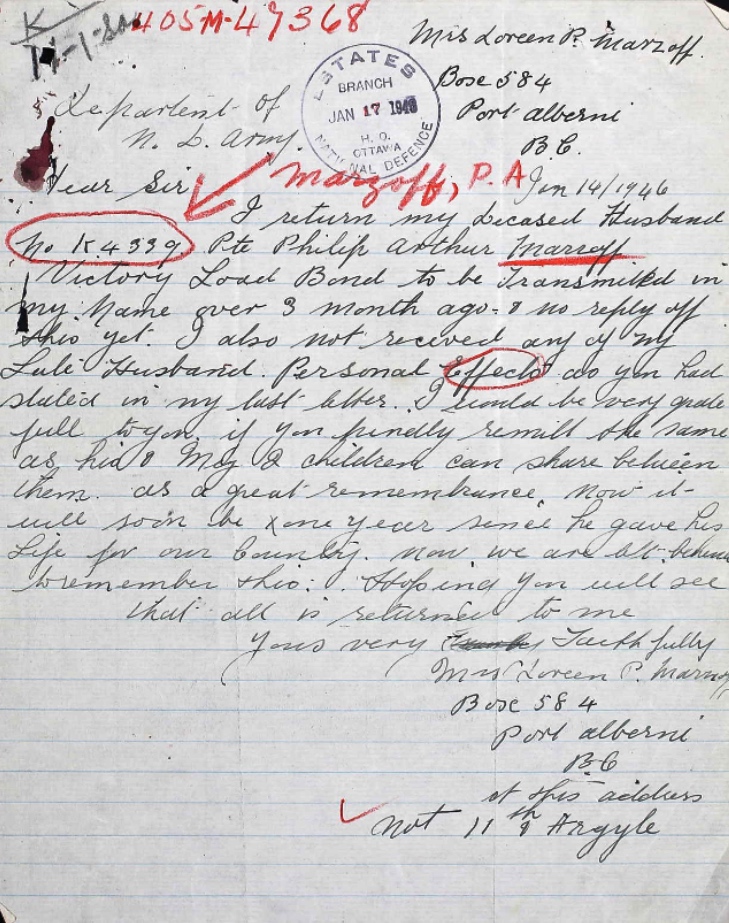 K
405M-47368
Mrs Loreen P. Marzoff.
Boxe 584
Port alberni
B.C.
ESTATES
BRANCH
JAN 17 1946
H. Q.
OTTAWA
NATIONAL DEFENCE
Departent of
N. D. Army.
Dear Sir
Marzoff, P.A
Jan 14/1946
I return my Decased Husband
No K.4339 Pte Philip Arthur Marzoff
Victory Load Bond to be Transmited in
my Name over 3 month ago. & no reply off
this yet. I also not receved any of my
Late Husband. Personal Effects as you had
stated in my last letter. I would be very grate
full to you, if you kindly remitt the same
as his & My 2 children can share between
them. as a great remembrance. Now it
will soon be x one year since he gave his
Life for our County. Now we are left behind
to remember this: . Hoping You will see
that all is returned to me
Yous very Faithfully
Mrs Loreen P. Marzoff
Boxe 584
Port alberni
BC
at this address
not 11 th Argyle